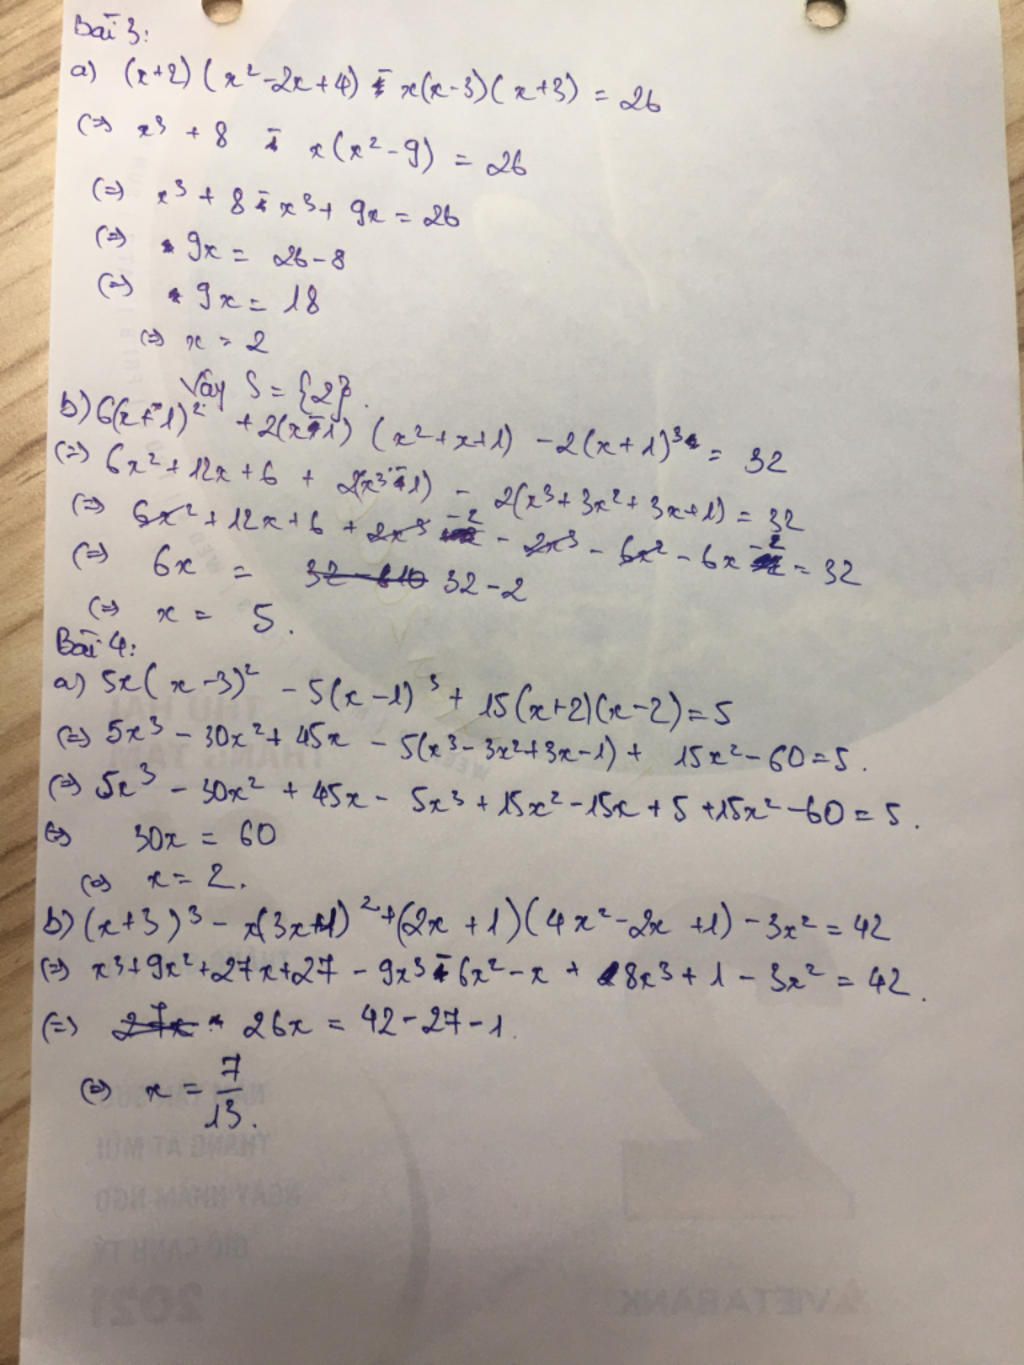 Bài 3:
a) (x+2)(x²-2x+4) - x(x-3)(x+3) = 26
(=) x³ + 8 - x(x²-9) = 26
(=) x³ + 8 - x³ + 9x = 26
(=) 9x = 26-8
(=) 9x = 18
(=) x = 2
Vậy S = {2}.
b) 6(x+1)² + 2(x-1)(x²+x+1) - 2(x+1)³ = 32
(=) 6x²+12x+6 + 2(x³-1) - 2(x³+3x²+3x+1) = 32
(=) 6x²+12x+6+2x³-2 - 2x³ - 6x² - 6x - 2 = 32
(=) 6x = 32-2
(=) x = 5.
Bài 4:
a) 5x(x-3)² - 5(x-1)³ + 15(x+2)(x-2)=5
(=) 5x³ - 30x²+45x - 5(x³-3x²+3x-1)+ 15x²-60=5.
(=) 5x³ - 30x² + 45x - 5x³ + 15x²-15x + 5 +15x²-60 = 5.
(=) 30x = 60
(=) x = 2.
b) (x+3)³ - x(3x+1)²+(2x+1)(4x²-2x+1)-3x²=42
(=) x³+9x²+27x+27 - 9x³-6x²-x + 8x³+1-3x²=42.
(=) 26x = 42-27-1.
(=) x = 7/13.
THÁNG ẤT MÙI
GIỜ CANH TÝ
2021
VIETABANK